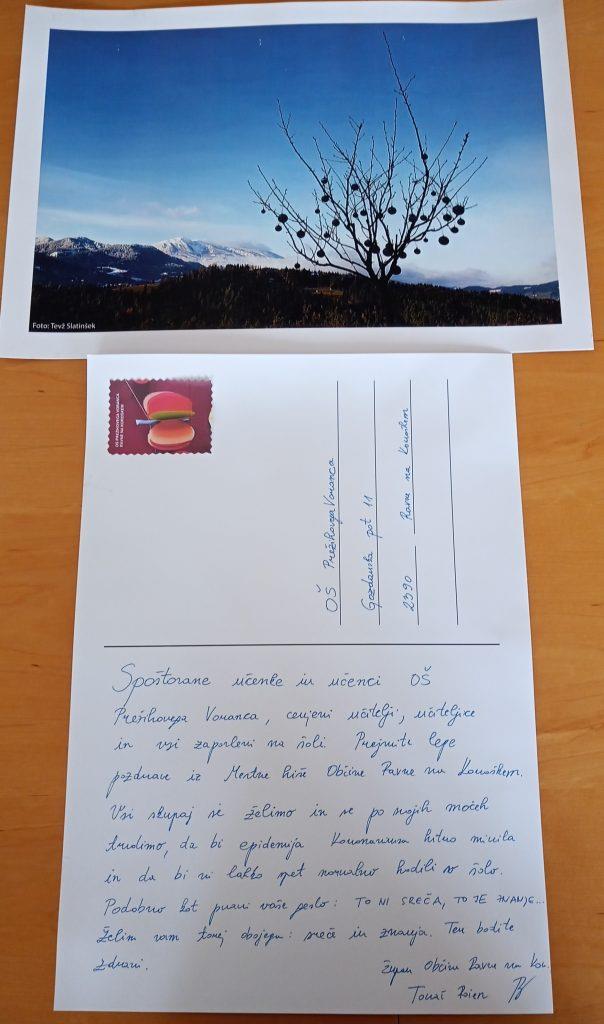 Foto: Tevž Slatinšek
OŠ PREŽIHOVEGA VORANCA
RAVNE NA KOROŠKEM
OŠ Prežihovega Voranca
Gozdarska pot 11
2390 Ravne na Koroškem
Spoštovane učenke in učenci OŠ
Prežihovega Voranca, cenjeni učitelji, učiteljice
in vsi zaposleni na šoli. Prejmite lepe
pozdrave iz Mestne hiše Občine Ravne na Koroškem.
Vsi skupaj si želimo in se po svojih močeh
trudimo, da bi epidemija Koronavirusa hitro minila
in da bi vi lahko spet normalno hodili v šolo.
Podobno kot pravi vaše geslo: TO NI SREČA, TO JE ZNANJE...
Želim vam torej obojega: sreče in znanja. Ter bodite
zdravi.
Župan Občine Ravne na Kor.
Tomaž Rožen